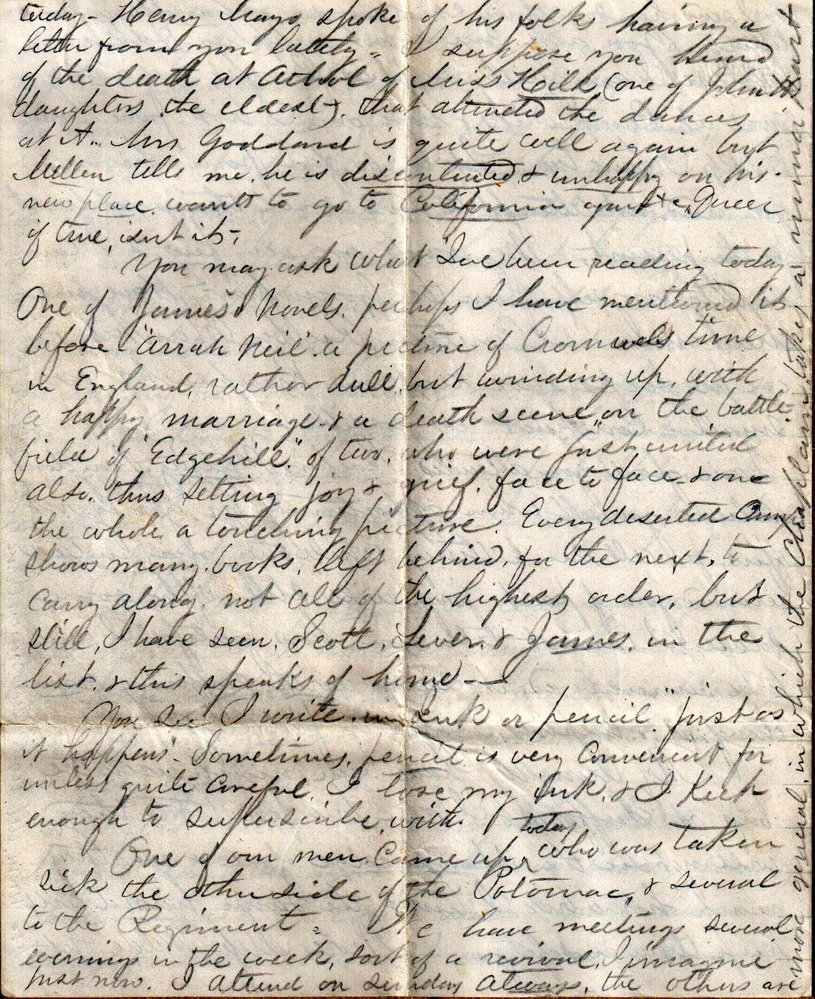 terday - Henry Mayo, spoke of his folks having a
letter from you lately - I suppose you heard
of the death at Athol of Miss Hill, (one of John H
daughters, the eldest), that attended the dances
at A- Mrs Goddard is quite well again but
Millen tells me, he is discontented & unhappy on his
new place. wants to go to California again &c, Queer
if true, isnt it-
You may ask what I've been reading today
One of James's Novels. perhaps I have mentioned it
before "Arrah Neil" a picture of Cromwels time
in England, rather dull, but winding up, with
a happy marriage & a death scene, on the battle
field of "Edgehill," of two, who were just united
also, thus setting joy & grief, face to face & on
the whole a touching picture. Every deserted Camp
shows many books, left behind, for the next, to
carry along, not all of the highest order, but
still, I have seen, Scott, Lever & James, in the
list, & this speaks of home -
You see I write in Ink or pencil "just as
it happens". Sometimes, pencil is very convenient for
unless quite careful, I lose my Ink, & I keep
enough to superscribe, with.
One of our men, came up, today who was taken
sick the other side of the Potomac, & several
to the Regiment - We have meetings several
evenings in the week, sort of a revival, I imagine
just now. I attend on sunday always, the others are
more general, in which the Chaplain takes a minor part